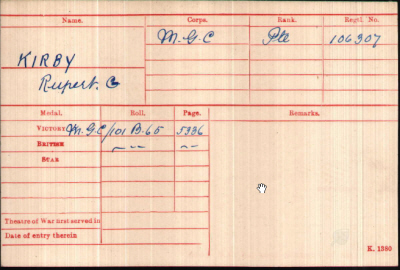 Name. Corps. Rank. Regtl. No.
M.G.C Pte 106307
KIRBY
Rupert. G
Medal. Roll. Page. Remarks.
VICTORY M.G.C/101 B.65 5336
BRITISH
STAR
Theatre of War first served in
Date of entry therein
K. 1380